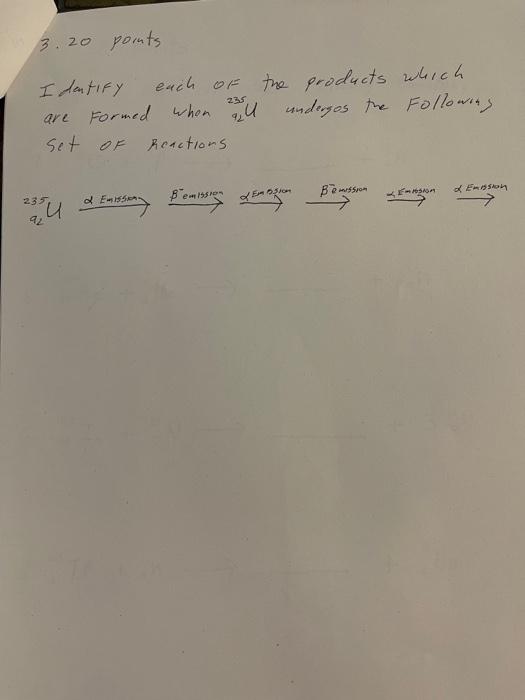 3. 20 points
Identify each of the products which
are Formed when ²³⁵₉₂U undergos the Following
Set OF Reactions
²³⁵₉₂U α Emission → β⁻ emission → α Emission → β⁻ emission → α Emission → α Emission →